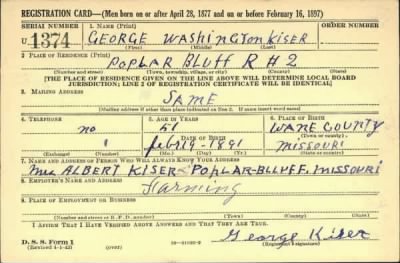 REGISTRATION CARD—(Men born on or after April 28, 1877 and on or before February 16, 1897)
SERIAL NUMBER 1. NAME (Print) ORDER NUMBER
U 1374 GEORGE WASHINGTON KISER
(First) (Middle) (Last)
2. PLACE OF RESIDENCE (Print)
POPLAR BLUFF R#2
(Number and street) (Town, township, village, or city) (County) (State)
[THE PLACE OF RESIDENCE GIVEN ON THE LINE ABOVE WILL DETERMINE LOCAL BOARD
JURISDICTION; LINE 2 OF REGISTRATION CERTIFICATE WILL BE IDENTICAL]
3. MAILING ADDRESS
SAME
[Mailing address if other than place indicated on line 2. If same insert word same]
4. TELEPHONE 5. AGE IN YEARS 6. PLACE OF BIRTH
no 51 WANE COUNTY
DATE OF BIRTH (Town or county)
Feb 19-1891 MISSOURI
(Exchange) (Number) (Mo.) (Day) (Yr.) (State or country)
7. NAME AND ADDRESS OF PERSON WHO WILL ALWAYS KNOW YOUR ADDRESS
Mrs ALBERT KISER-POPLAR-BLLUFF, MISSOURI
8. EMPLOYER'S NAME AND ADDRESS
Farming
9. PLACE OF EMPLOYMENT OR BUSINESS
(Number and street or R. F. D. number) (Town) (County) (State)
I AFFIRM THAT I HAVE VERIFIED ABOVE ANSWERS AND THAT THEY ARE TRUE.
George Kiser
D. S. S. Form 1
(Revised 4-1-42) (over) (Registrant's signature)